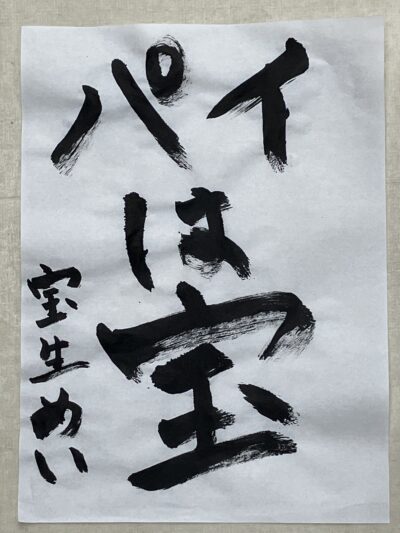 パイ
は
宝
宝生めい